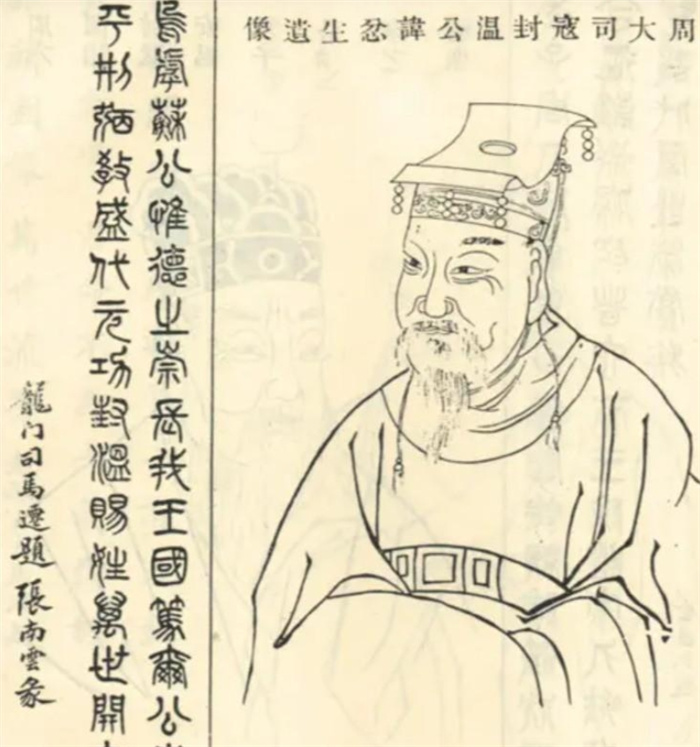 周大司寇封温公諱忿生遺像
烏虖蘇公惟德之崇長我王國篤爾公
平刑弼教盛代元功封溫賜姓萬世開
龍门司馬遷題 張南雲篆